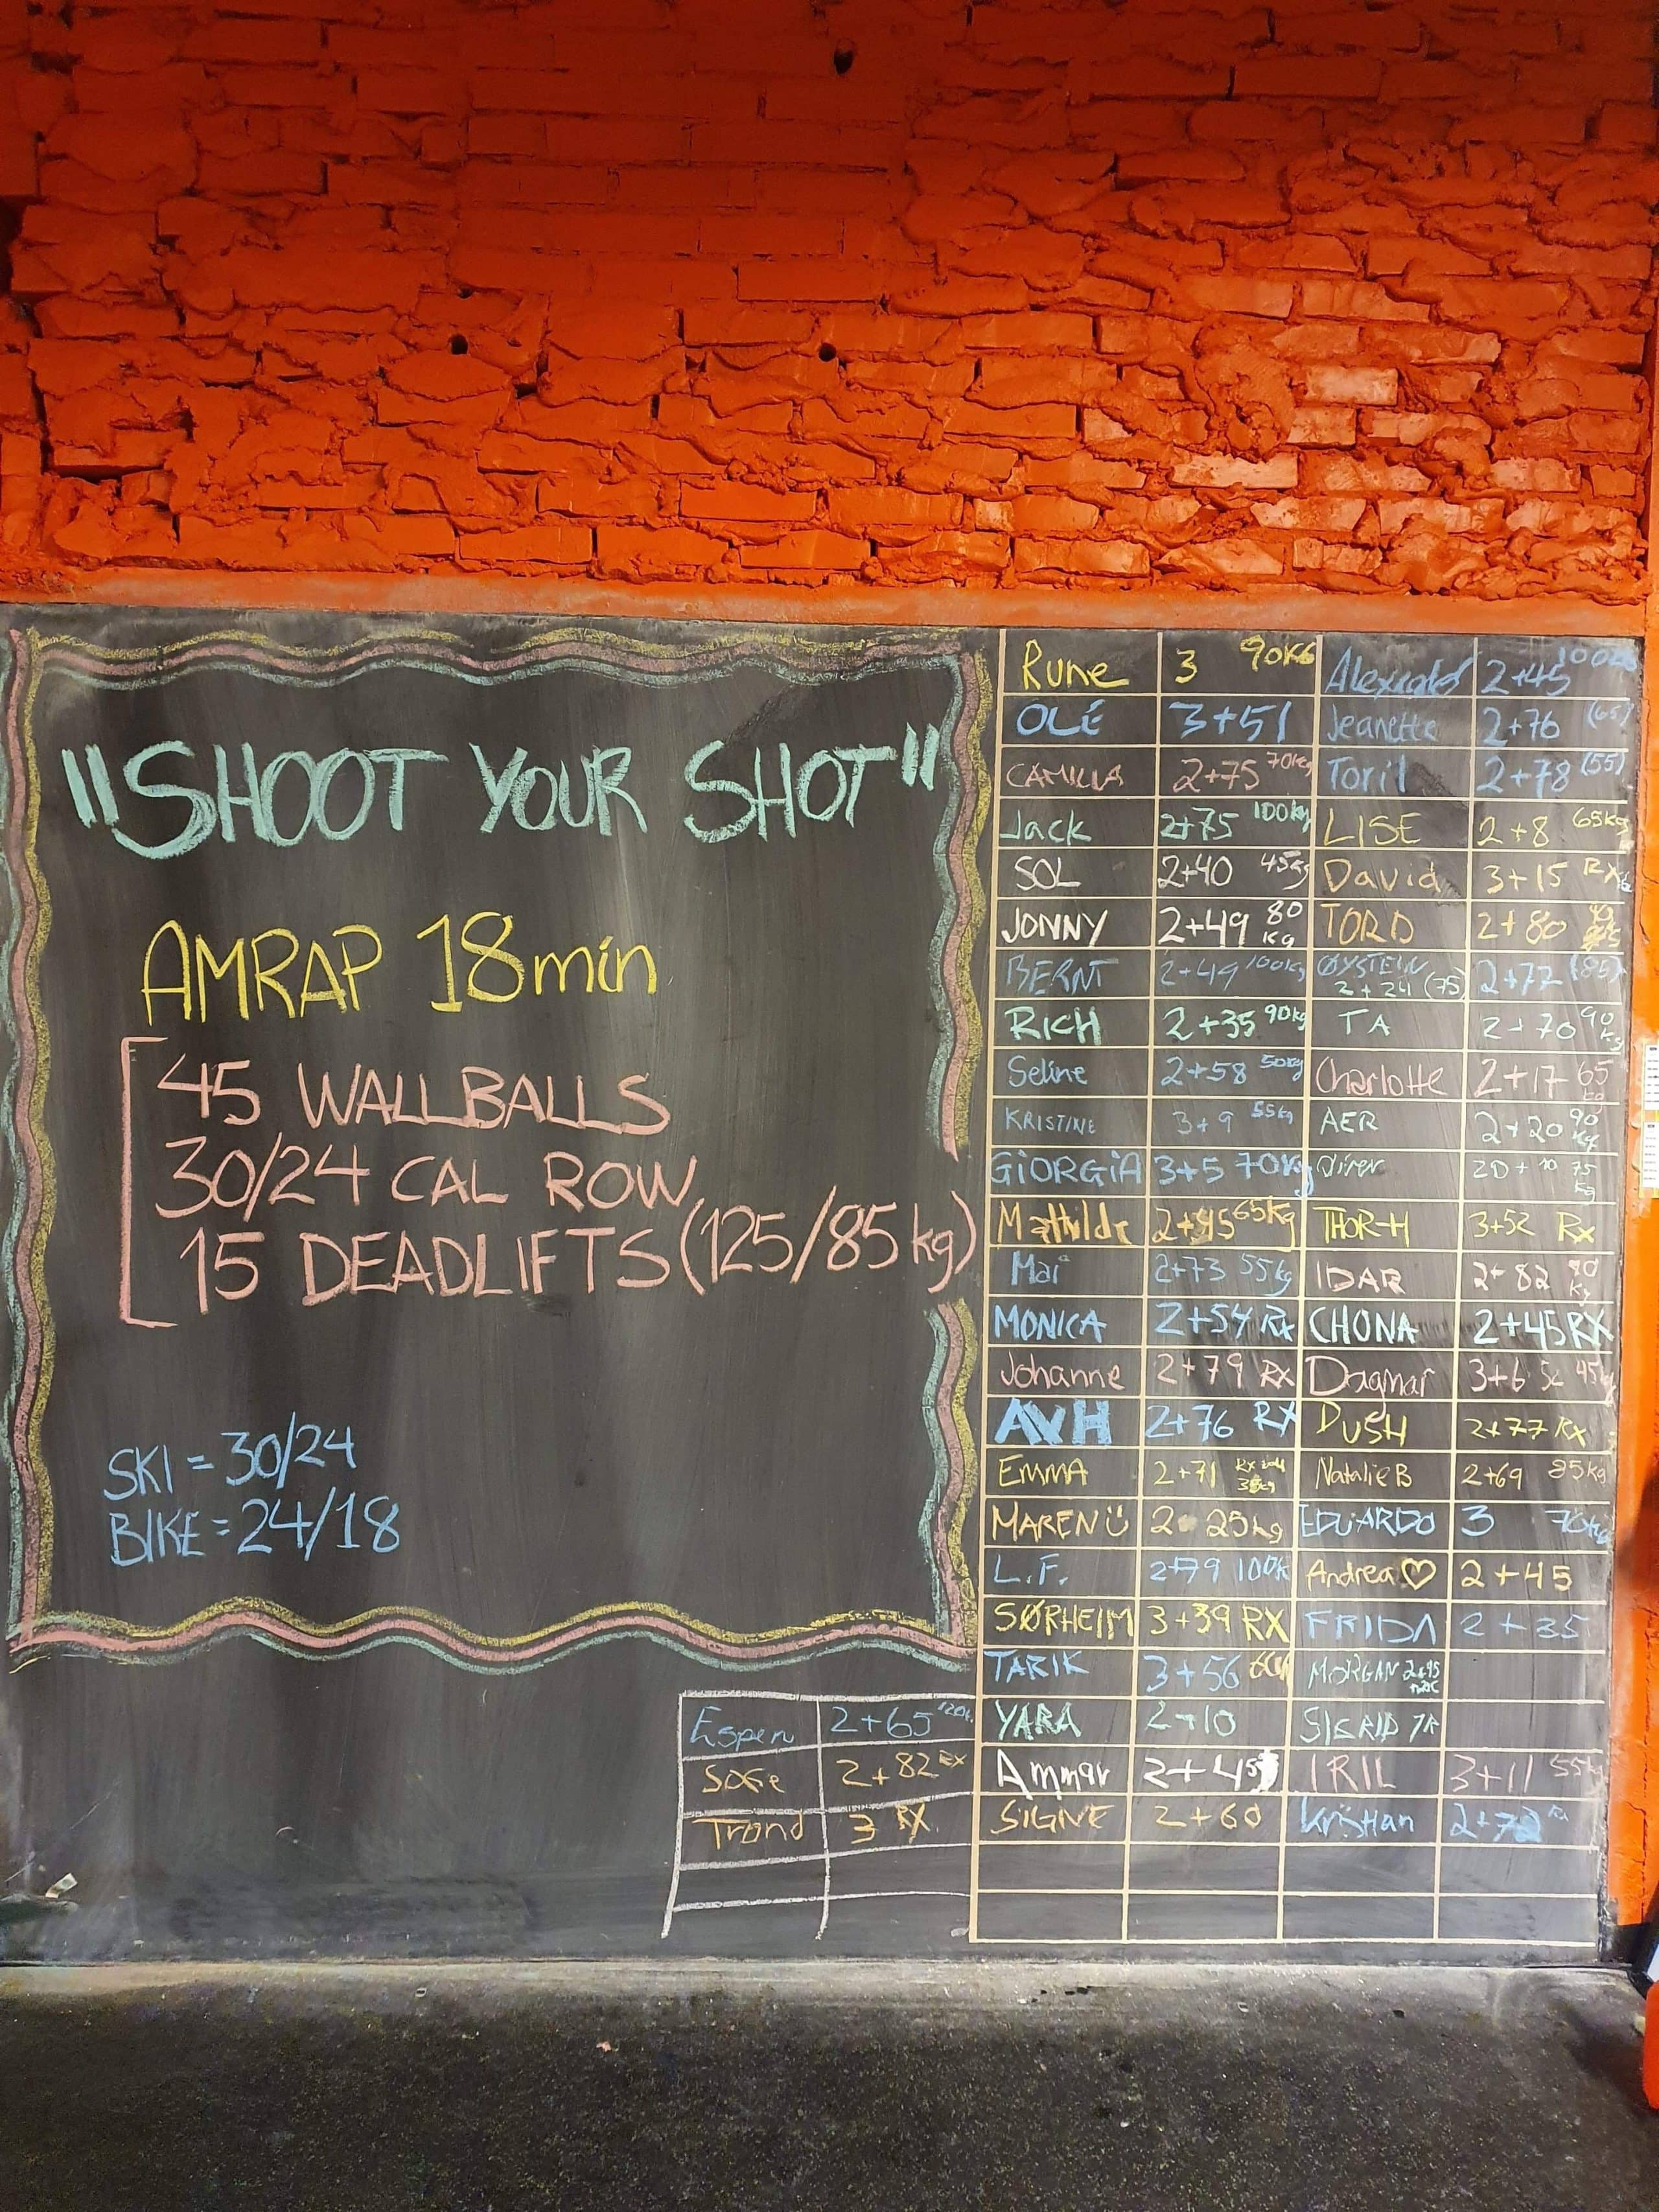 "SHOOT YOUR SHOT"
AMRAP 18min
45 WALLBALLS
30/24 CAL ROW
15 DEADLIFTS (125/85 kg)
SKI = 30/24
BIKE = 24/18
Espen 2+65 120k
Sofie 2+82 RX
Trond 3 RX
Rune 3 90KG 2+45 100kg
OLÉ 3+51 Jeanette 2+76 (65)
CAMILLA 2+75 70kg Toril 2+78 (55)
Jack 2+75 100kg LISE 2+8 65kg
SOL 2+40 45kg David 3+15 RX
JONNY 2+49 80 kg TORD 2+80
BERNT 2+49 100kg ØYSTEIN 2+24 (75) 2+77 (85)
RICH 2+35 90kg TA 2+70 90 kg
Seline 2+58 50kg Charlotte 2+17 65 kg
KRISTINE 3+9 55kg AER 2+20 90 kg
GiORGiA 3+5 70kg 20+10 75 kg
Mathilde 65kg THOR-H 3+52 Rx
Mai 2+73 55kg IDAR 2+82 90 kg
MONICA 2+54 Rx CHONA 2+45 RX
Johanne 2+79 RX Dagmar 3+6 45kg
AVH 2+76 RX DUSH 2+77 RX
EMMA 2+71 Natalie B 2+69 85kg
MAREN 2 25kg EDUARDO 3 70kg
L.F. 2+79 100k Andrea♡ 2+45
SØRHEIM 3+39 RX FRIDA 2+35
TARIK 3+56 MORGAN 2+45
YARA 2+10 SIGRID
Ammar 2+45 IRIL 3+11 55kg
SIGNE 2+60 Kristian 2+72 Rx